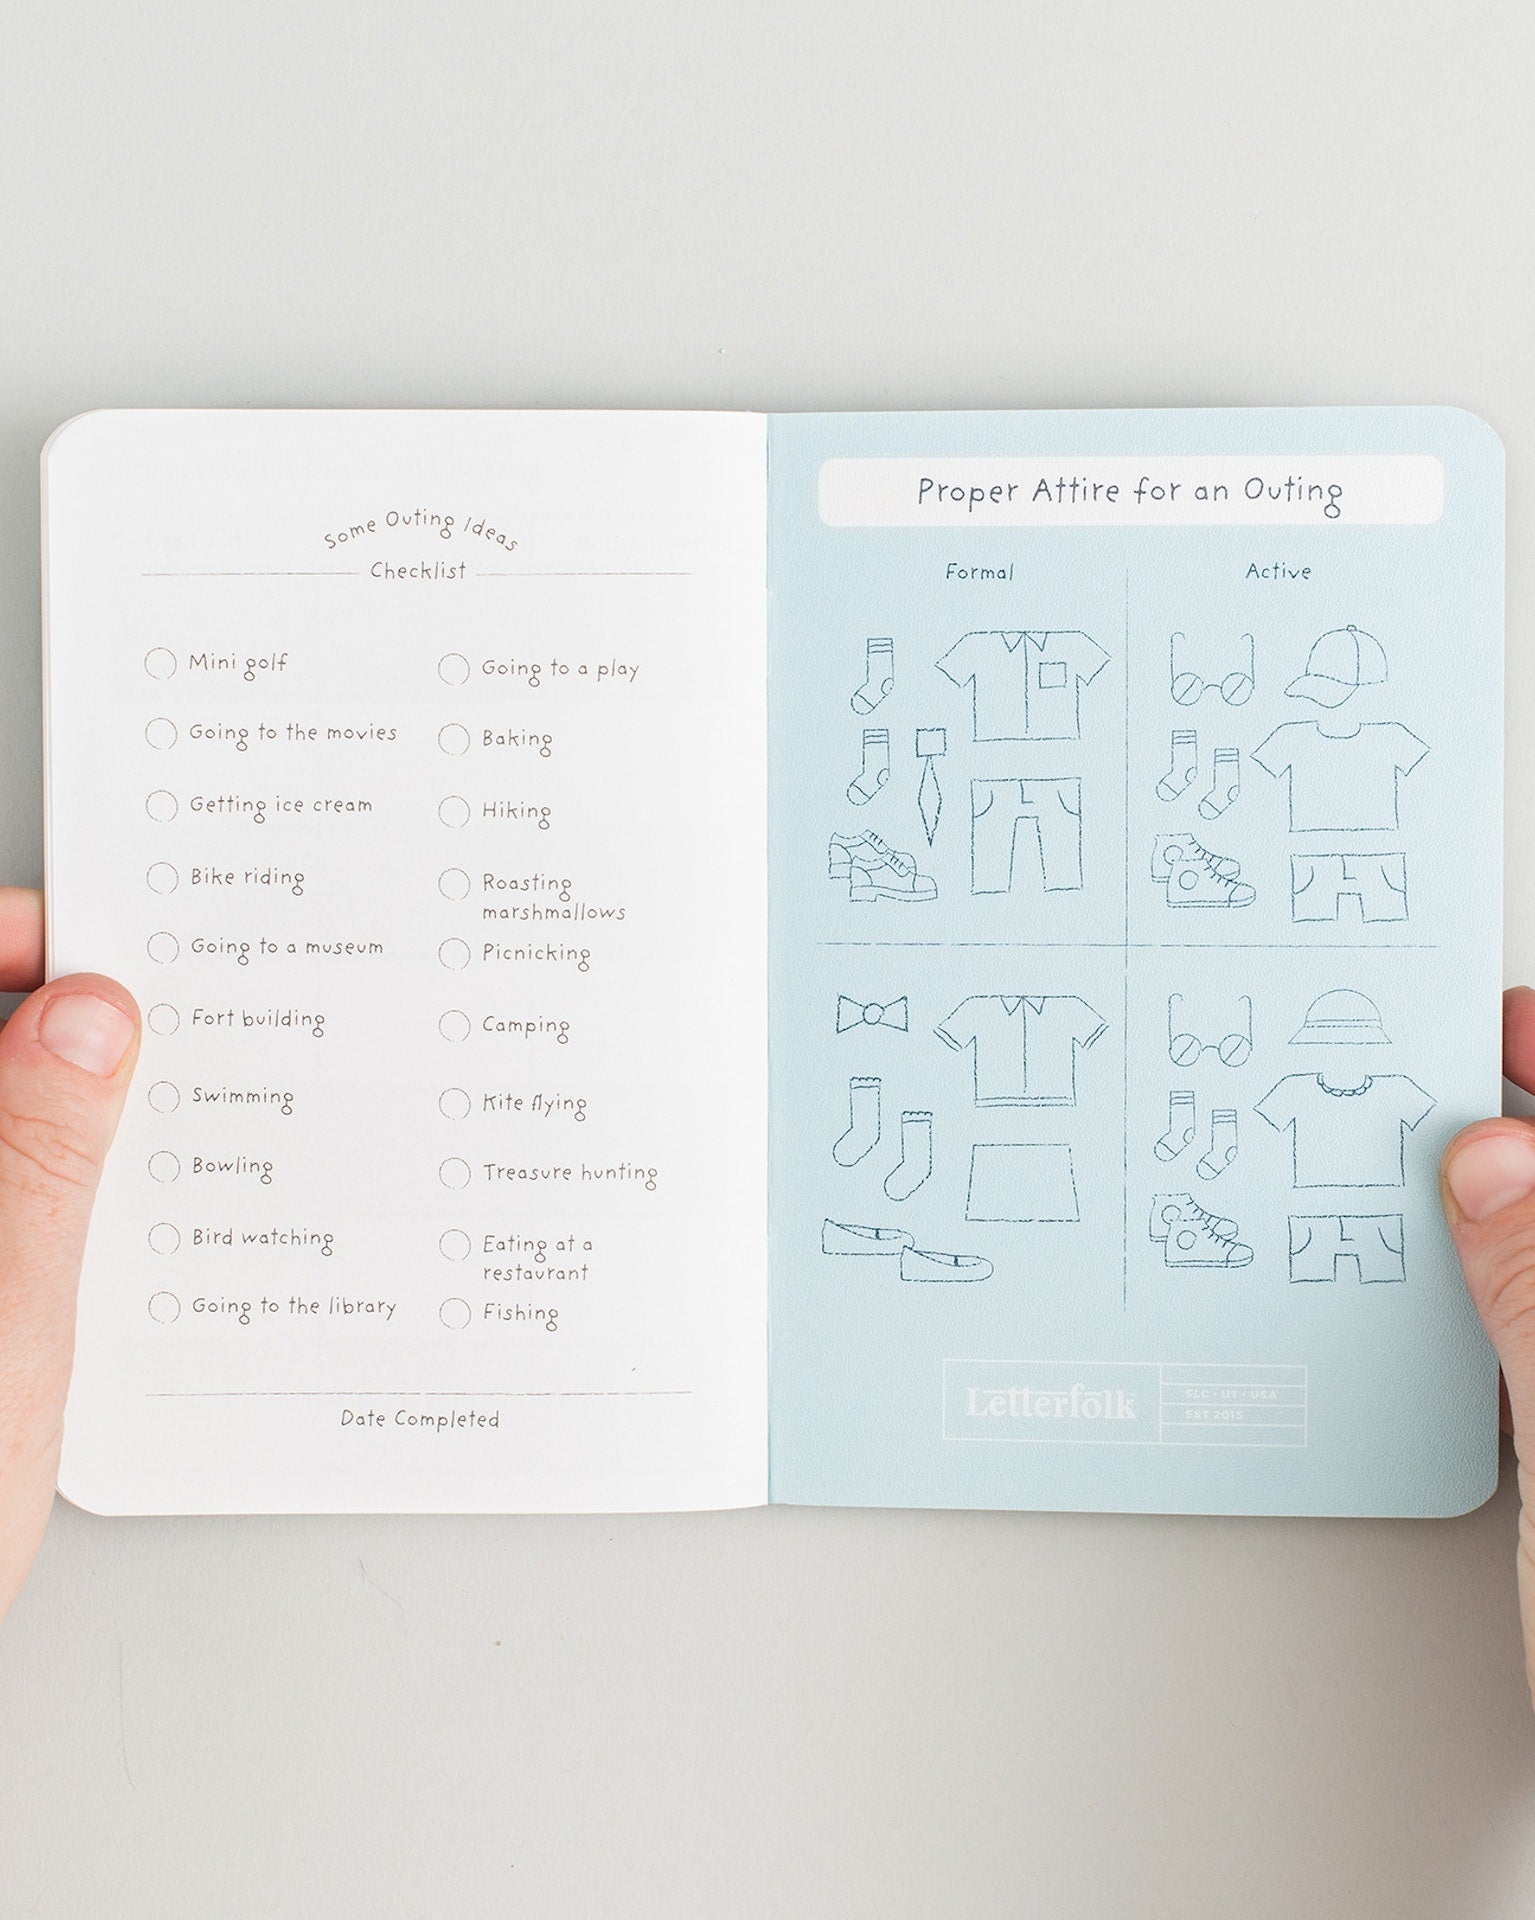 Some Outing Ideas
Checklist
Mini golf
Going to the movies
Getting ice cream
Bike riding
Going to a museum
Fort building
Swimming
Bowling
Bird watching
Going to the library
Going to a play
Baking
Hiking
Roasting
marshmallows
Picnicking
Camping
Kite flying
Treasure hunting
Eating at a
restaurant
Fishing
Date Completed
Proper Attire for an Outing
Formal
Active
Letterfolk
SLC • UT • USA
EST 2015